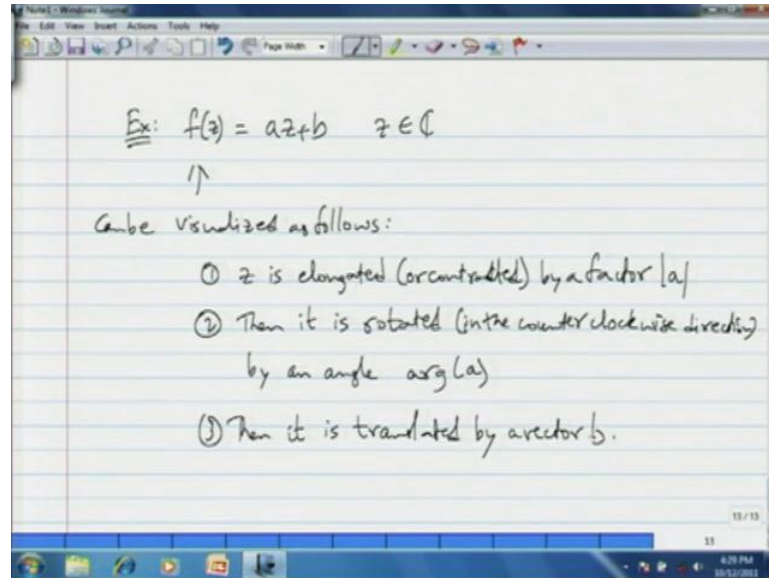 Note1 - Windows Journal
File Edit View Insert Actions Tools Help
Page Width
Ex: f(z) = az+b z ∈ ℂ
⇑
Can be visualized as follows:
① z is elongated (or contracted) by a factor |a|
② Then it is rotated (in the counter clockwise direction)
by an angle arg(a)
③ Then it is translated by a vector b.
13/13
13
4:29 PM
10/12/2011